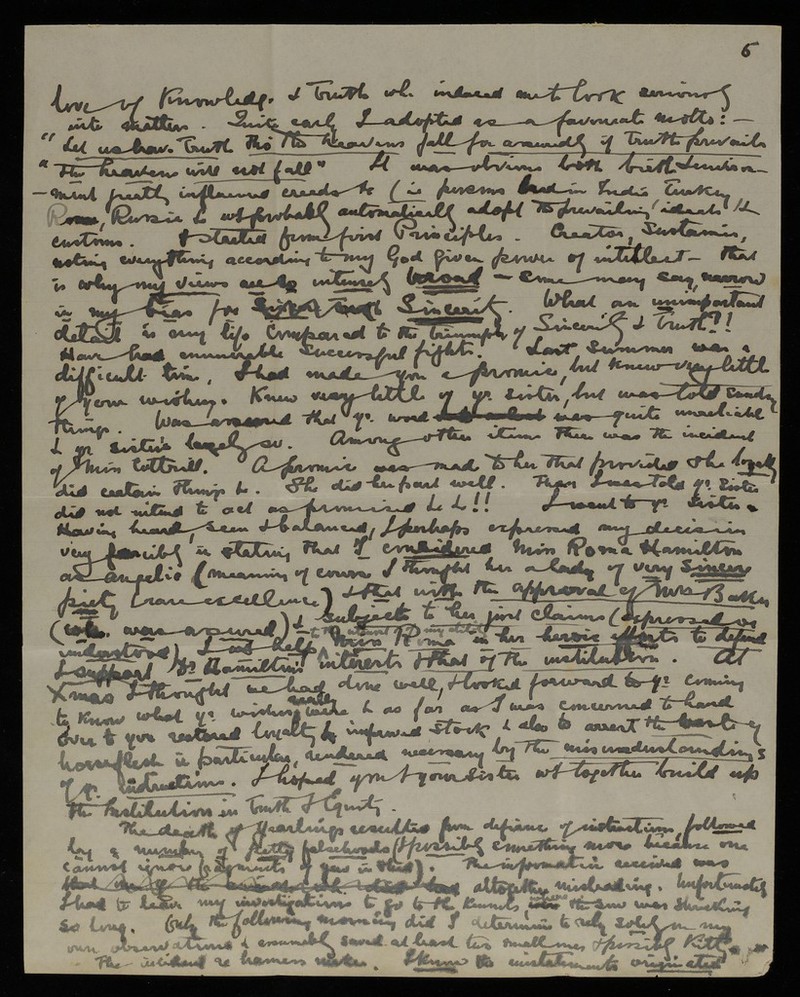 6
love of Knowledge & Truth wh. induced me to look seriously
into matters. Quite early I adopted as a favourite motto:-
"Let us have Truth tho' the Heavens fall for assuredly if truth prevails
"the heavens will not fall" It was obvious both birth & environ-
-ment greatly influence creeds &c (ie persons bred in India Turkey
Rome, Russia &c wd probably automatically adopt the prevailing ideals &
customs. I started from first Principles. Creator, Sustainer,
noting everything according to my God given power of intellect - that
is why my views are so intensely broad - some may say, narrow
in my bias for Sincerity. What an unimportant
detail is my life compared to the triumph of Sincerity & Truth?!!
Have had innumerable successful fights. Last Summer was a
difficult time, I had made you a promise, but knew very little
of your wishes. Knew very little of yr. sister, but was told sundry
things. Was assured that yr. word was quite unreliable
& yr sister's largely so. Among other items there was the incident
of Miss Cottrill. A promise was made to her that provided she loyally
did certain things &c. She did her part well. Then I was told yr. sister
did not intend to act as promised &c &c!! I went to yr. sister &
having heard, seen & balanced, I perhaps expressed my decision
very forcibly in stating that I considered Miss Roma Hamilton
as angelic (meaning of course I thought her a lady of very sincere
piety (rare excellence) & that with the approval of Mrs Baker
(wh. was assured) & subject to her just claims (expressed or
understood) I wd help to the utmost of my ability Miss Roma in her heroic efforts to defend
& support Dr Hamilton's interests & that of the institution. At
Xmas I thought we had done well, & looked forward to yr. coming
to know what yr. wishes really were & as far as I was concerned to hand
over to you restored loyalty & improved stock & also to avert the
horseflesh in particular, rendered necessary by the misunderstandings
of yr. instructions. I hoped you & your sister wd together build up
the Institution in Truth & Equity.
The death of Yearlings resulted from defiance of instructions, followed
by a number of petty falsehoods (& possibly something more because one
cannot ignore ). The information received was
altogether misleading. Unfortunately
I had to leave my investigations to go to the Kennels, where the sow was shrieking
so long. Only the following morning did I determine to rely solely on my
own observations & assuredly saved at least two small ones & possibly
The incident re harness maker. I knew the misstatements originated